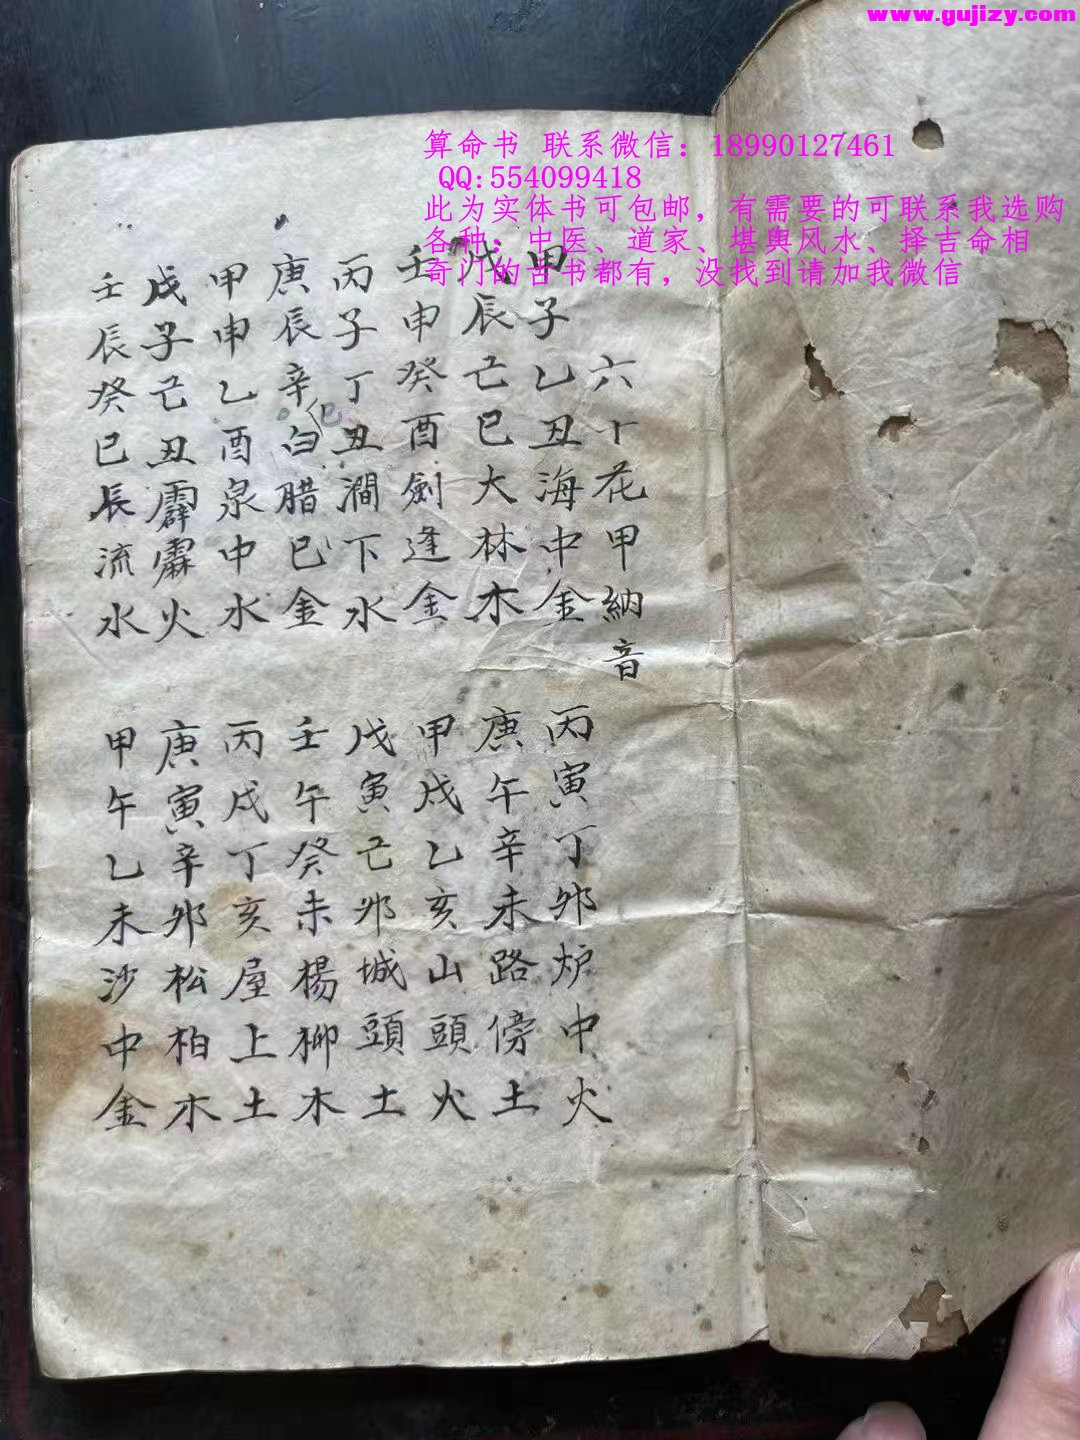 www.gujizy.com
算命书 联系微信：18990127461
QQ:554099418
此为实体书可包邮，有需要的可联系我选购
各种：中医、道家、堪舆风水、择吉命相
奇门的古书都有，没找到请加我微信
六十花甲納音
甲子乙丑海中金
丙寅丁卯炉中火
戊辰己巳大林木
庚午辛未路傍土
壬申癸酉劍逢金
甲戌乙亥山頭火
丙子丁丑澗下水
戊寅己卯城頭土
庚辰辛巳白腊巳金
壬午癸未楊柳木
甲申乙酉泉中水
丙戌丁亥屋上土
戊子己丑霹靂火
庚寅辛卯松柏木
壬辰癸巳長流水
甲午乙未沙中金